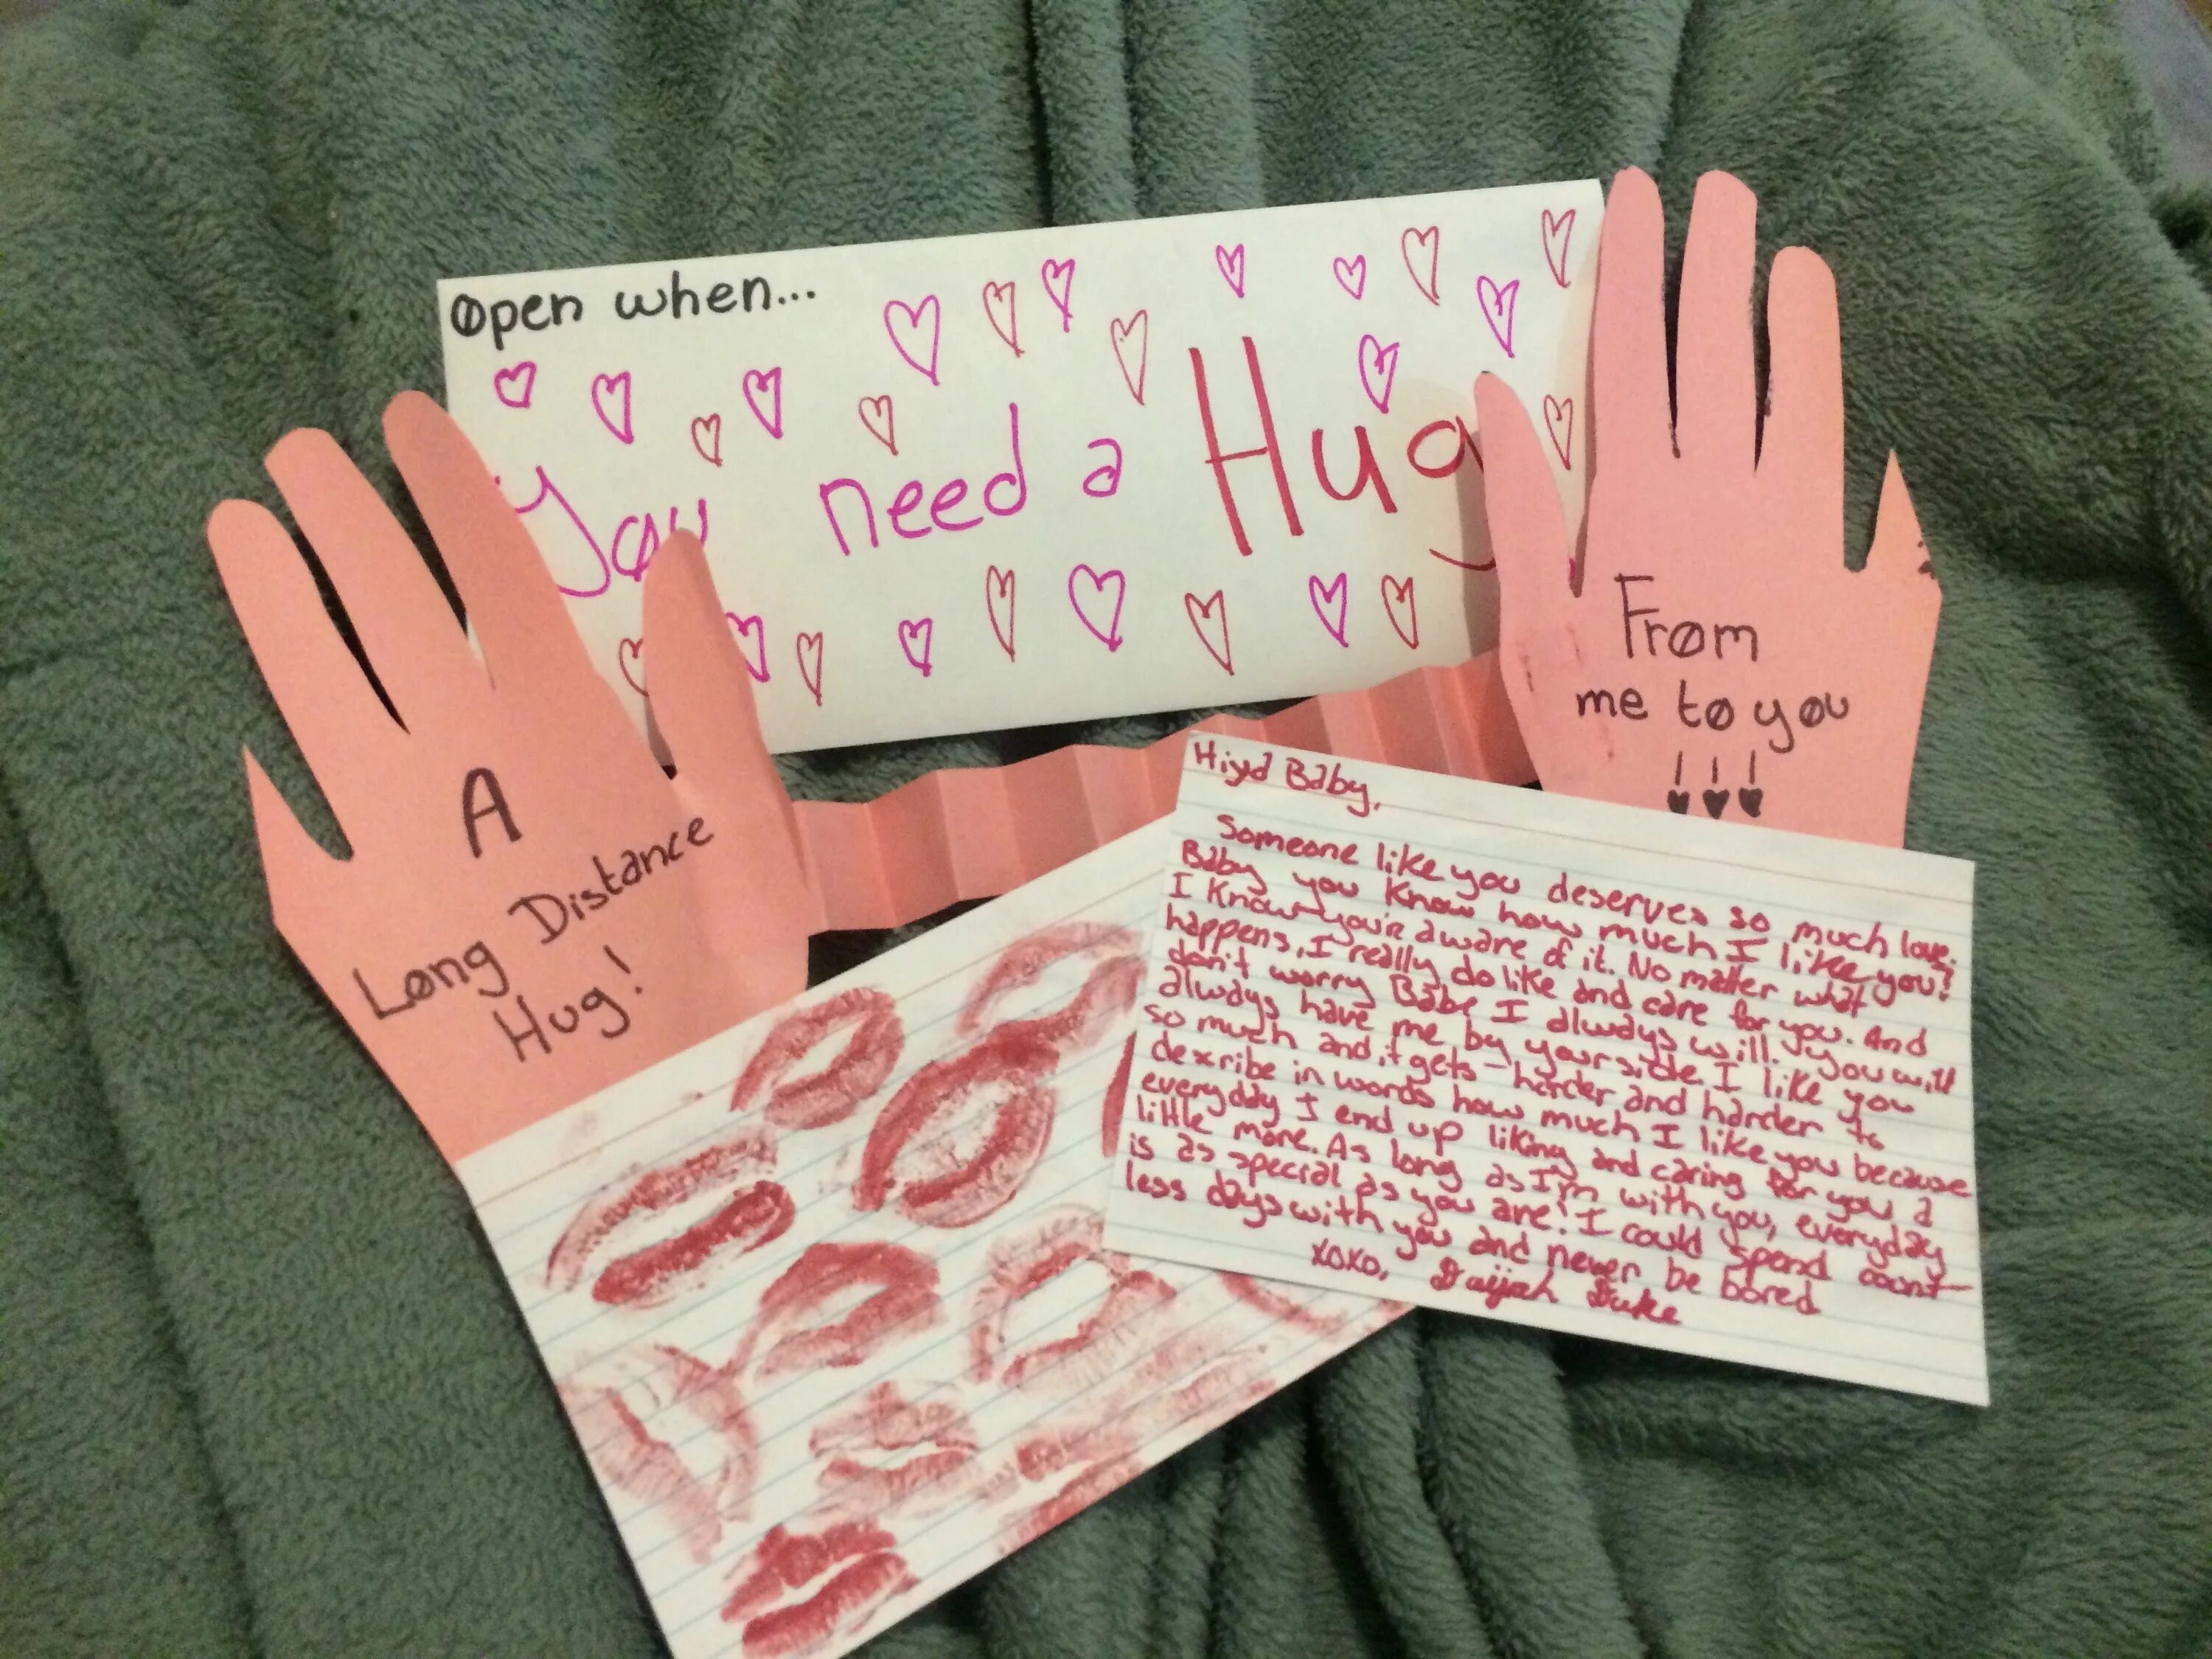 Open when...
You need a Hug
A
Long Distance
Hug!
From
me to you
Hiya Baby,
Someone like you deserves so much love.
Baby you know how much I like you?
I know you're aware of it. No matter what
happens, I really do like and care for you. And
don't worry Babe I always will. You will
always have me by your side. I like you
so much and it gets harder and harder to
describe in words how much I like you because
everyday I end up liking and caring for you a
little more. As long as I'm with you, everyday
is as special as you are! I could spend count-
less days with you and never be bored
xoxo, Daijah Duke